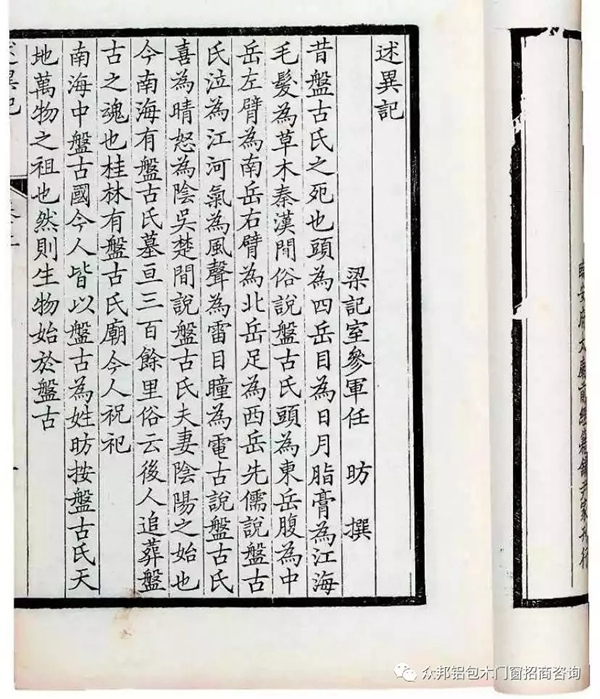 臨安府太廟前經籍鋪尹家刊行
述異記
梁記室參軍任 昉 撰
昔盤古氏之死也頭為四岳目為日月脂膏為江海
毛髮為草木秦漢間俗說盤古氏頭為東岳腹為中
岳左臂為南岳右臂為北岳足為西岳先儒說盤古
氏泣為江河氣為風聲為雷目瞳為電古說盤古氏
喜為晴怒為陰吳楚間說盤古氏夫妻陰陽之始也
今南海有盤古氏墓亘三百餘里俗云後人追葬盤
古之魂也桂林有盤古氏廟今人祝祀
南海中盤古國今人皆以盤古為姓昉按盤古氏天
地萬物之祖也然則生物始於盤古
述異記
众邦铝包木门窗招商咨询